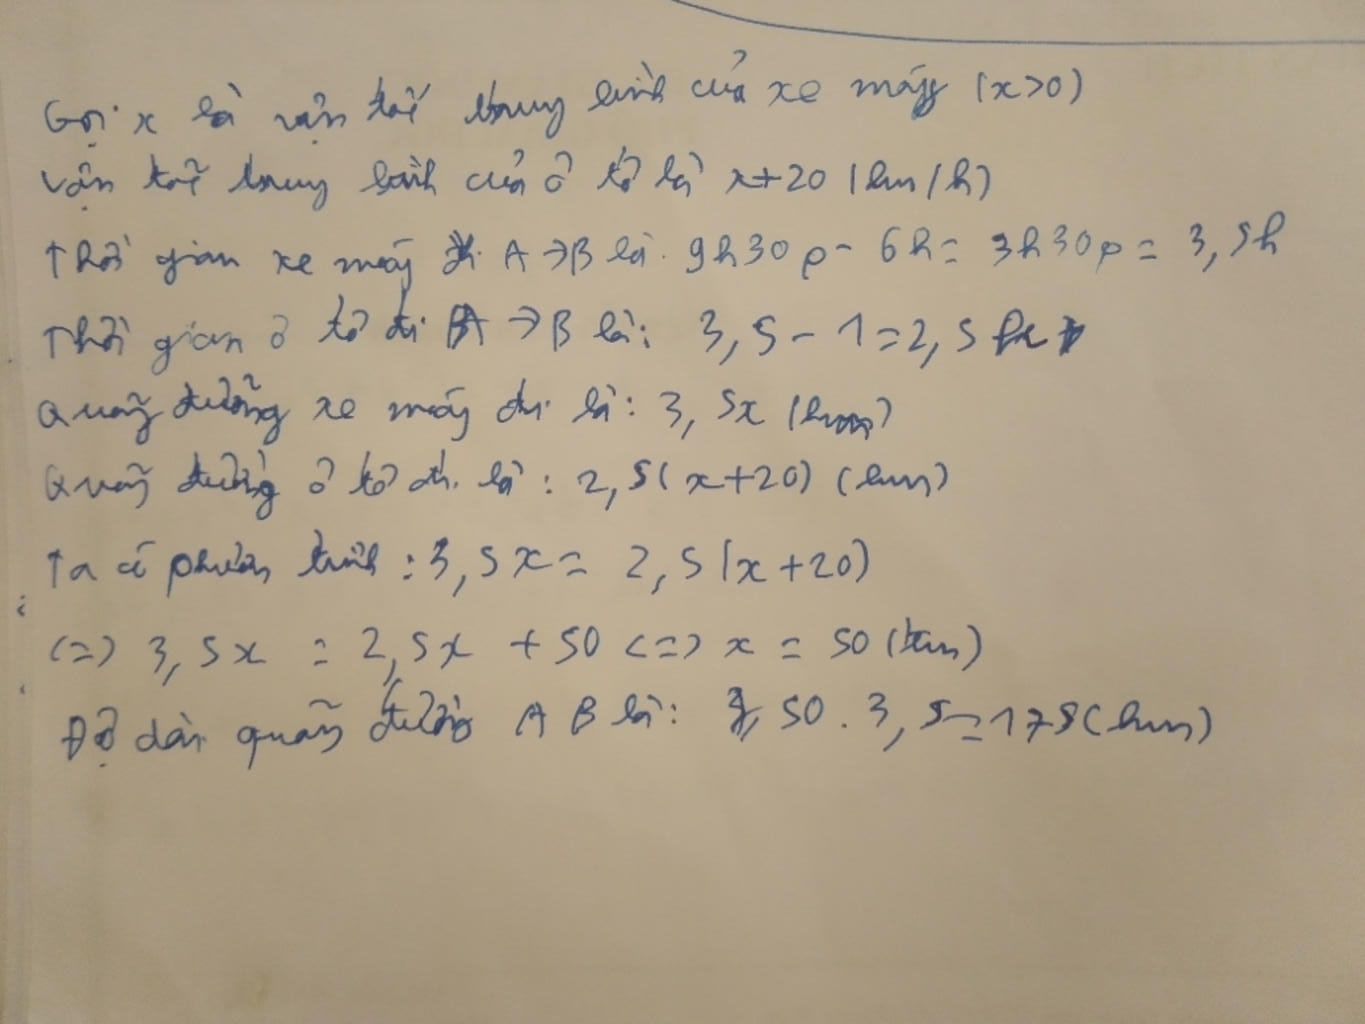 Gọi x là vận tốc trung bình của xe máy (x>0)
Vận tốc trung bình của ô tô là x+20 (km/h)
Thời gian xe máy đi A→B là 9h30p - 6h = 3h30p = 3,5h
Thời gian ô tô đi A→B là: 3,5 - 1 = 2,5h
Quãng đường xe máy đi là: 3,5x (km)
Quãng đường ô tô đi là: 2,5(x+20) (km)
Ta có phương trình: 3,5x = 2,5(x+20)
<=> 3,5x = 2,5x + 50 <=> x = 50 (km)
Độ dài quãng đường AB là: 50.3,5=175(km)